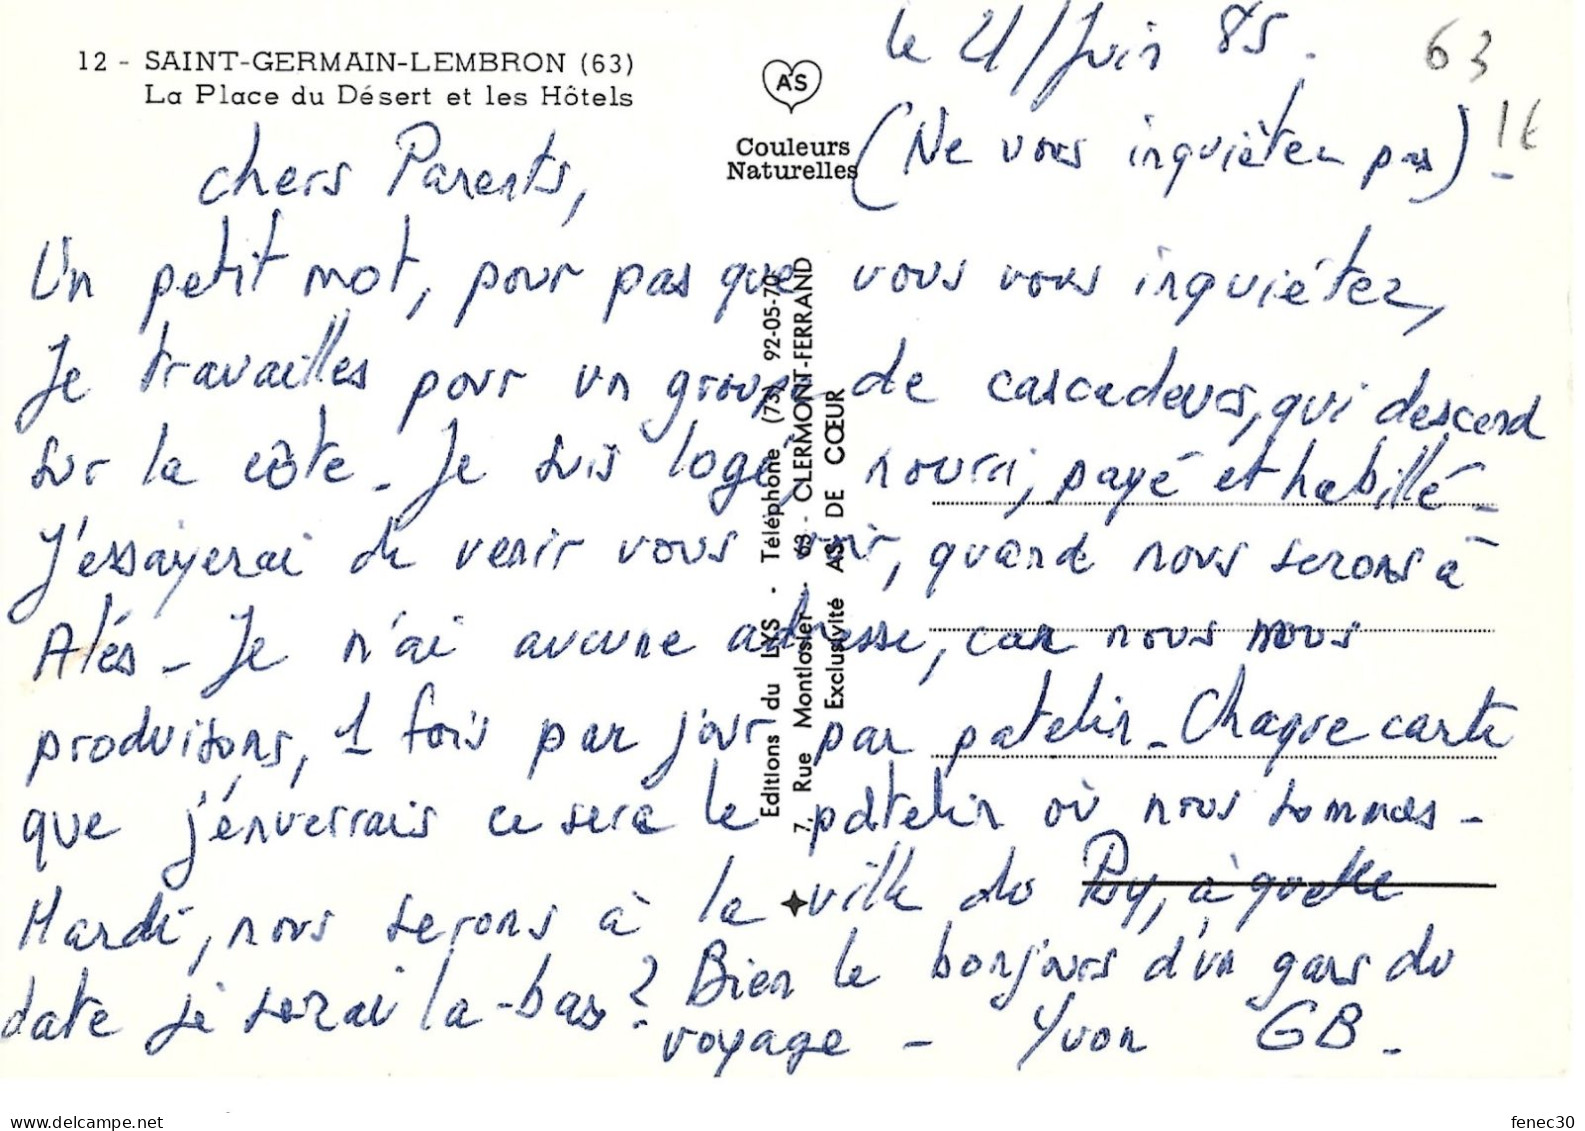 12 - SAINT-GERMAIN-LEMBRON (63)
La Place du Désert et les Hôtels
AS
Couleurs
Naturelles
le 21/Juin 85.
63
1€
(Ne vous inquiètez pas)
chers Parents,
Un petit mot, pour pas que vous vous inquiétez,
Je travailles pour un groupe de cascadeurs, qui descend
sur la côte. Je suis logé, nourri, payé et habillé -
J'essayerai de venir vous voir, quand nous serons à
Alés - Je n'ai aucune adresse, car nous nous
produisons, 1 fois par jour par patelin - Chaque carte
que j'énverrais ce sera le patelin où nous sommes -
Mardi, nous serons à la ville du Puy, à quelle
date je serai la-bas? Bien le bonjours d'un gars du
voyage - Yvon GB.
Editions du LYS - Téléphone (73) 92-05-70
7, Rue Montlosier - 63 - CLERMONT-FERRAND
Exclusivité AS DE CŒUR
www.delcampe.net
fenec30